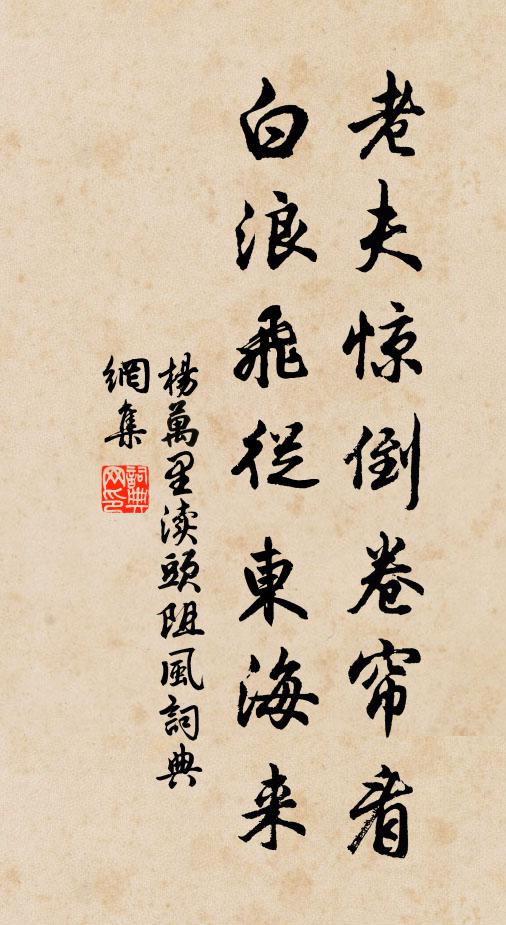 老夫惊倒卷帘看
白浪飛從東海来
楊萬里渎頭阻風詞典
網集
詞典網印